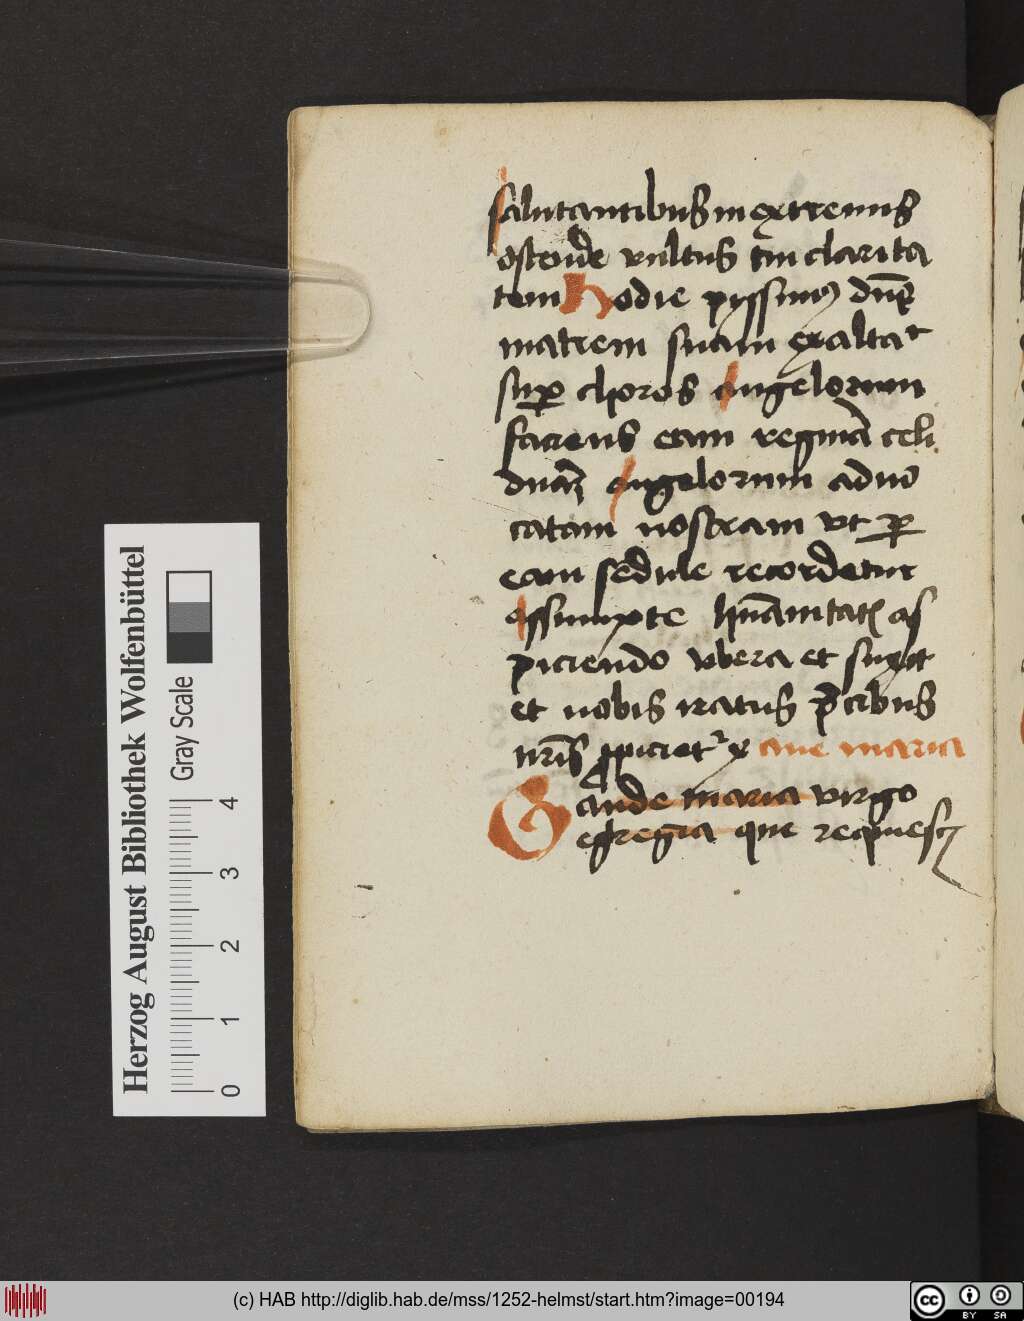 salutantibus in extremis
ostende vultus tui clarita
tem Hodie pijssimus dns
matrem suam exaltat
sup choros angelorum
faciens eam reginā celi
dnam angelorum aduo
catam nostram vt p
eam sedule recordetur
assumpte hūanitatis as
piciendo vbera et suxit
et nobis iratus pcibus
nris ppicietr x aue maria
Gaude maria virgo
egregia que requiesc
Herzog August Bibliothek Wolfenbüttel
Gray Scale
0 1 2 3 4
(c) HAB http://diglib.hab.de/mss/1252-helmst/start.htm?image=00194
cc BY SA